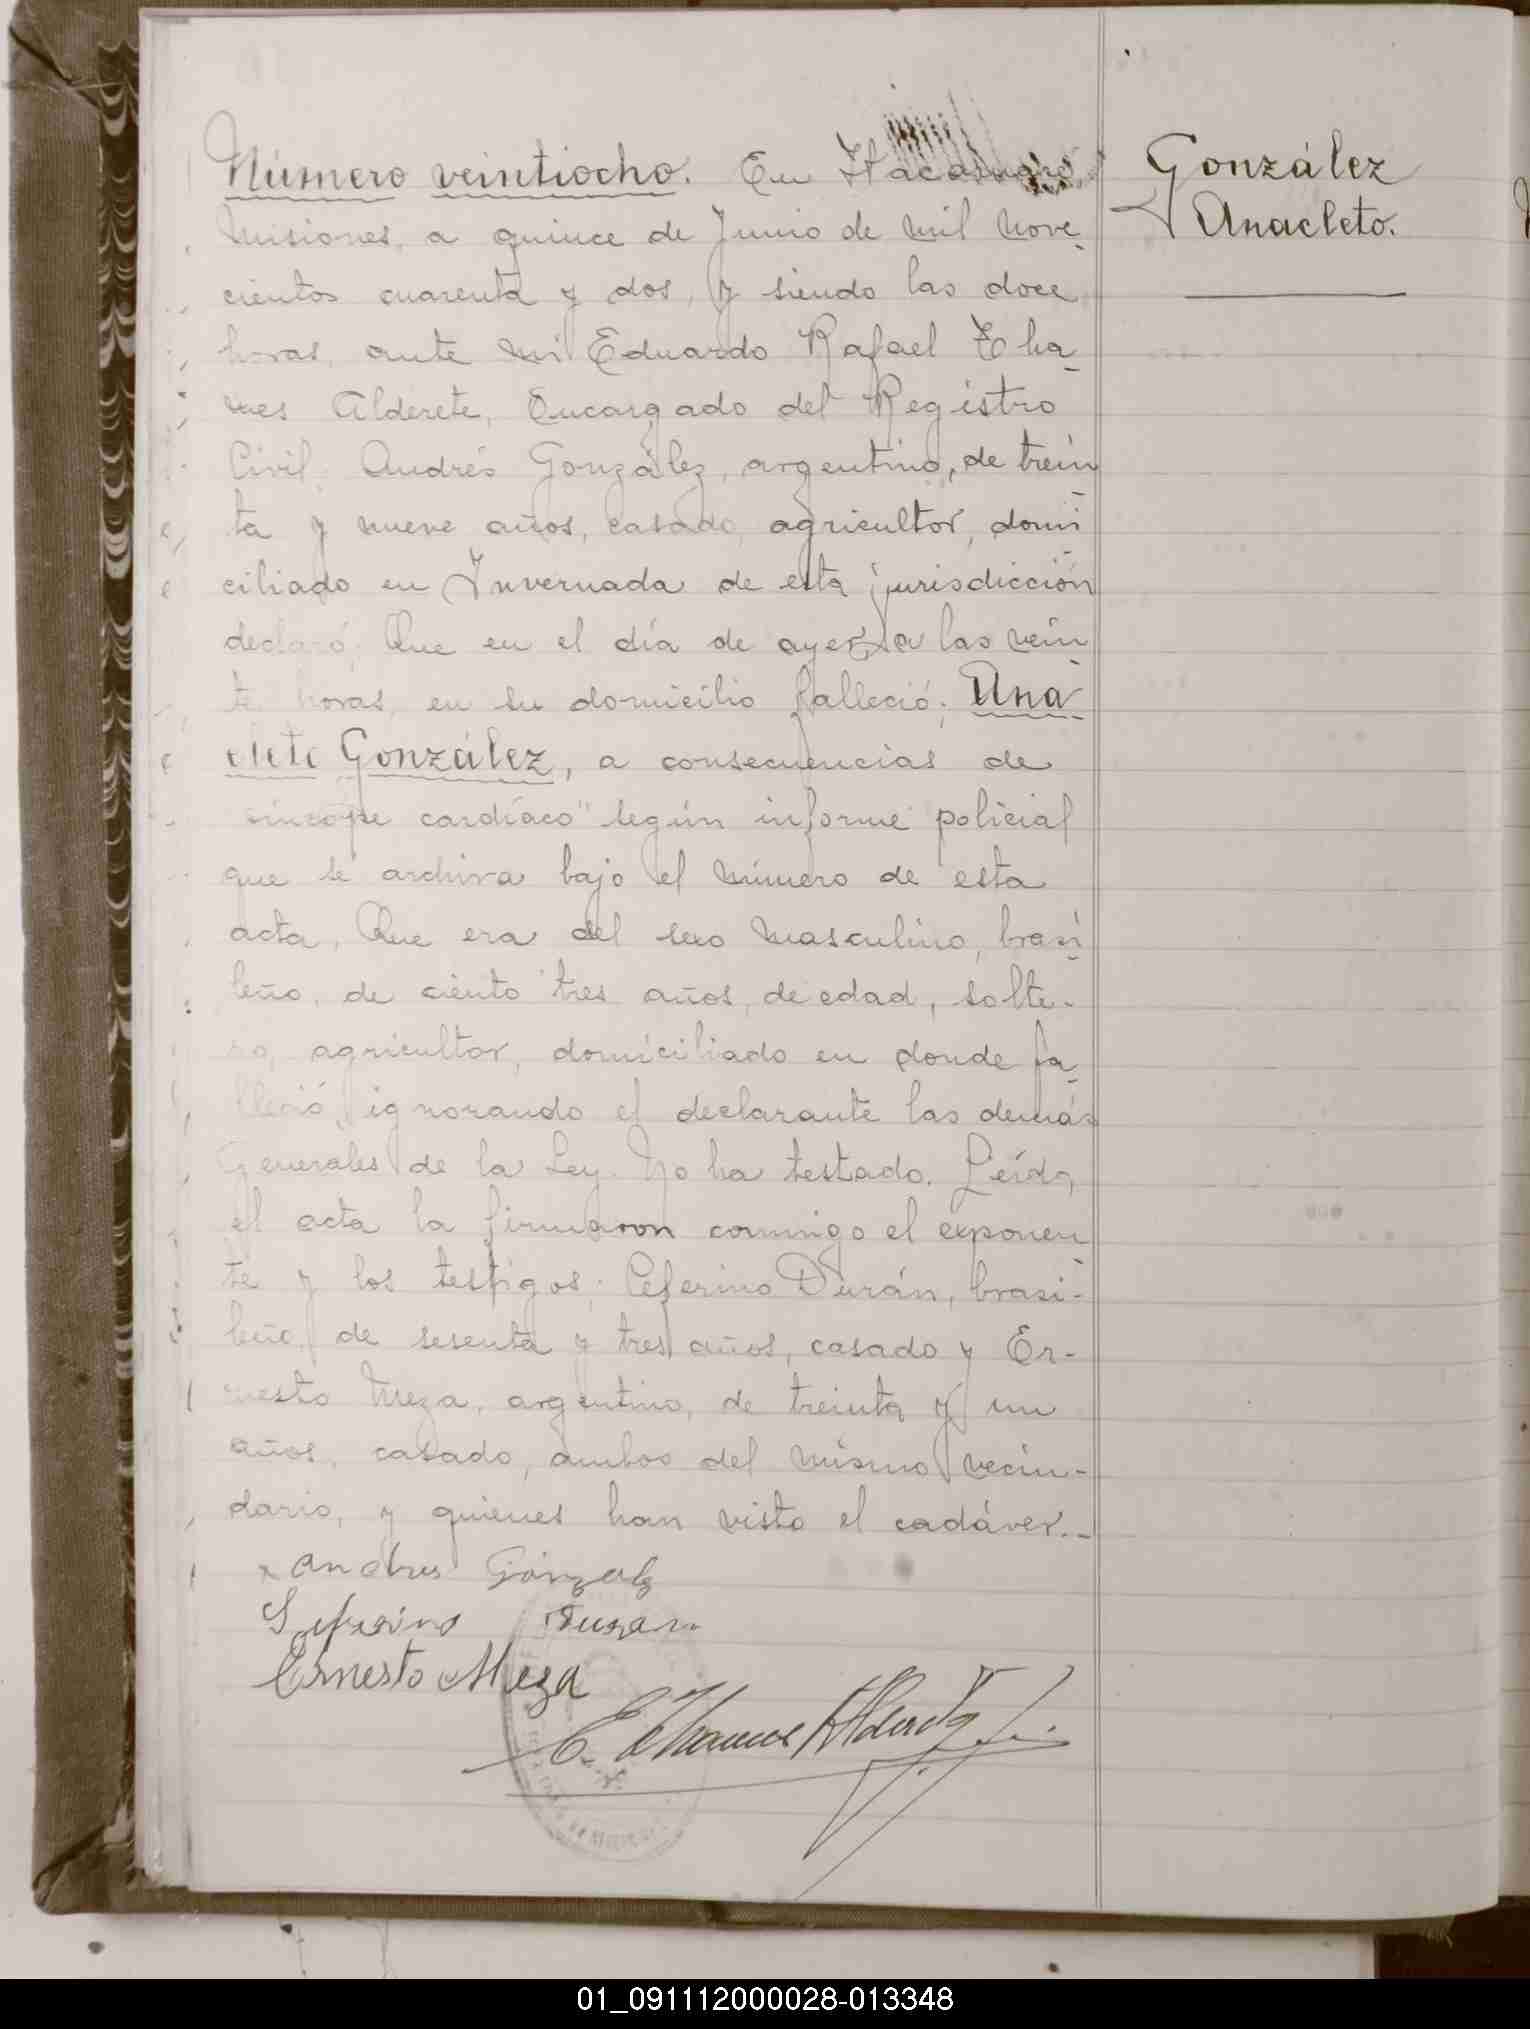 Número veintiocho. En Itacaruaré
González
Misiones, a quince de Junio de mil nove-
Anacleto.
cientos cuarenta y dos, y siendo las doce
horas, ante mi Eduardo Rafael Tha-
mes Alderete, Encargado del Registro
Civil, Andrés González, argentino, de trein-
ta y nueve años, casado, agricultor, domi-
ciliado en Invernada de esta jurisdicción
declaró: Que en el día de ayer, a las vein-
te horas, en su domicilio falleció; Ana-
cleto González, a consecuencias de
"sincope cardíaco" según informe policial
que se archiva bajo el número de esta
acta, Que era del sexo masculino, brasi-
leño, de ciento tres años, de edad, solte-
ro, agricultor, domiciliado en donde fa-
lleció, ignorando el declarante las demás
Generales de la Ley. No ha testado. Leída
el acta la firmaron conmigo el exponen-
te y los testigos; Ceferino Durán, brasi-
leño, de sesenta y tres años, casado y Er-
nesto Meza, argentino, de treinta y un
años, casado, ambos del mismo vecin-
dario, y quienes han visto el cadáver.-
Andres Gonzalz
Seferino Duran
Ernesto Meza
E. Thames Alderete
01_091112000028-013348